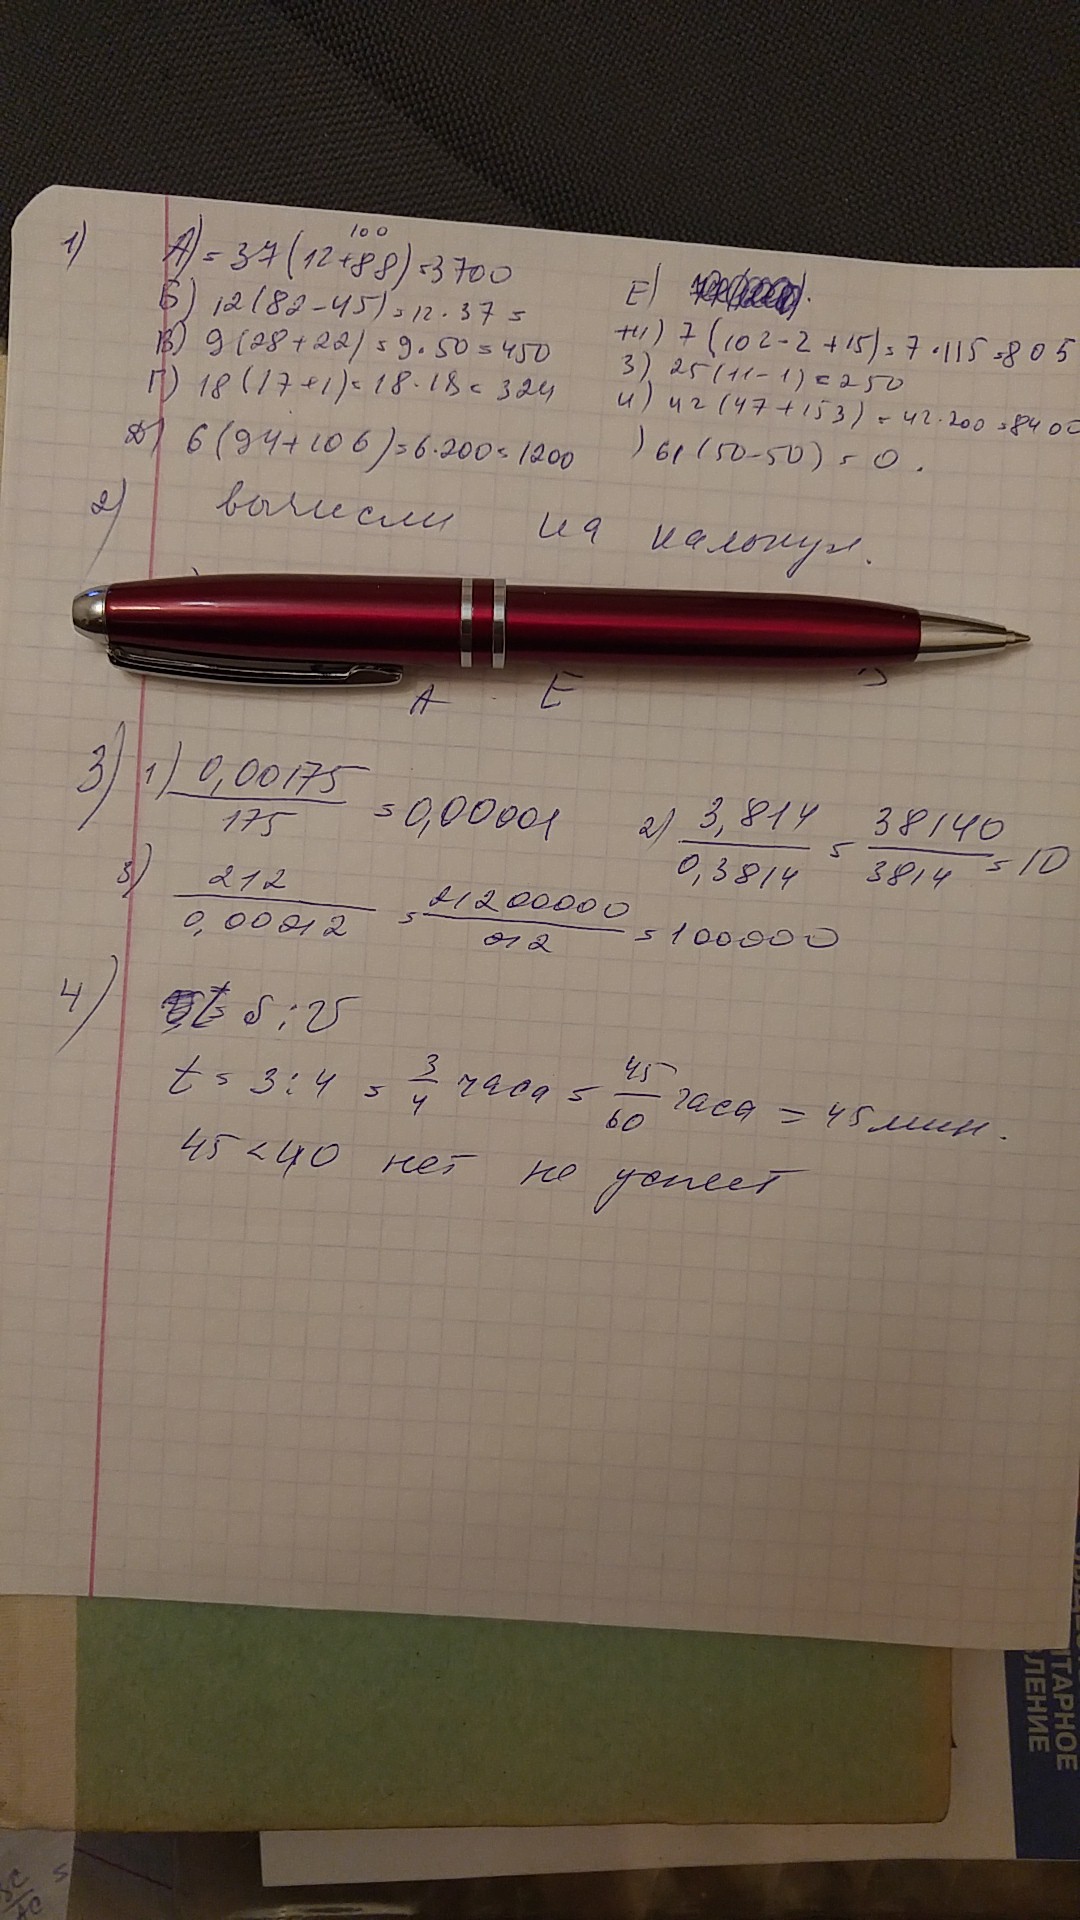 1)
100
А) = 37(12+88)=3700
Б) 12(82-45)=12·37=
В) 9(28+22)=9·50=450
Г) 18(17+1)=18·18=324
Д) 6(94+106)=6·200=1200
Е)
7(102-2+15)=7·115=805
З) 25(11-1)=250
И) 42(47+153)=42·200=8400
) 61(50-50)=0.
2) вычисли на калькул.
А Е
3) 1) 0,00175/175 = 0,00001
2) 3,814/0,3814 = 38140/3814 = 10
3) 212/0,00212 = 21200000/212 = 100000
4) t= S:V
t= 3:4 = 3/4 часа = 45/60 часа = 45 мин.
45<40 нет не успеет
ТАРНОЕ
ЛЕНИЕ